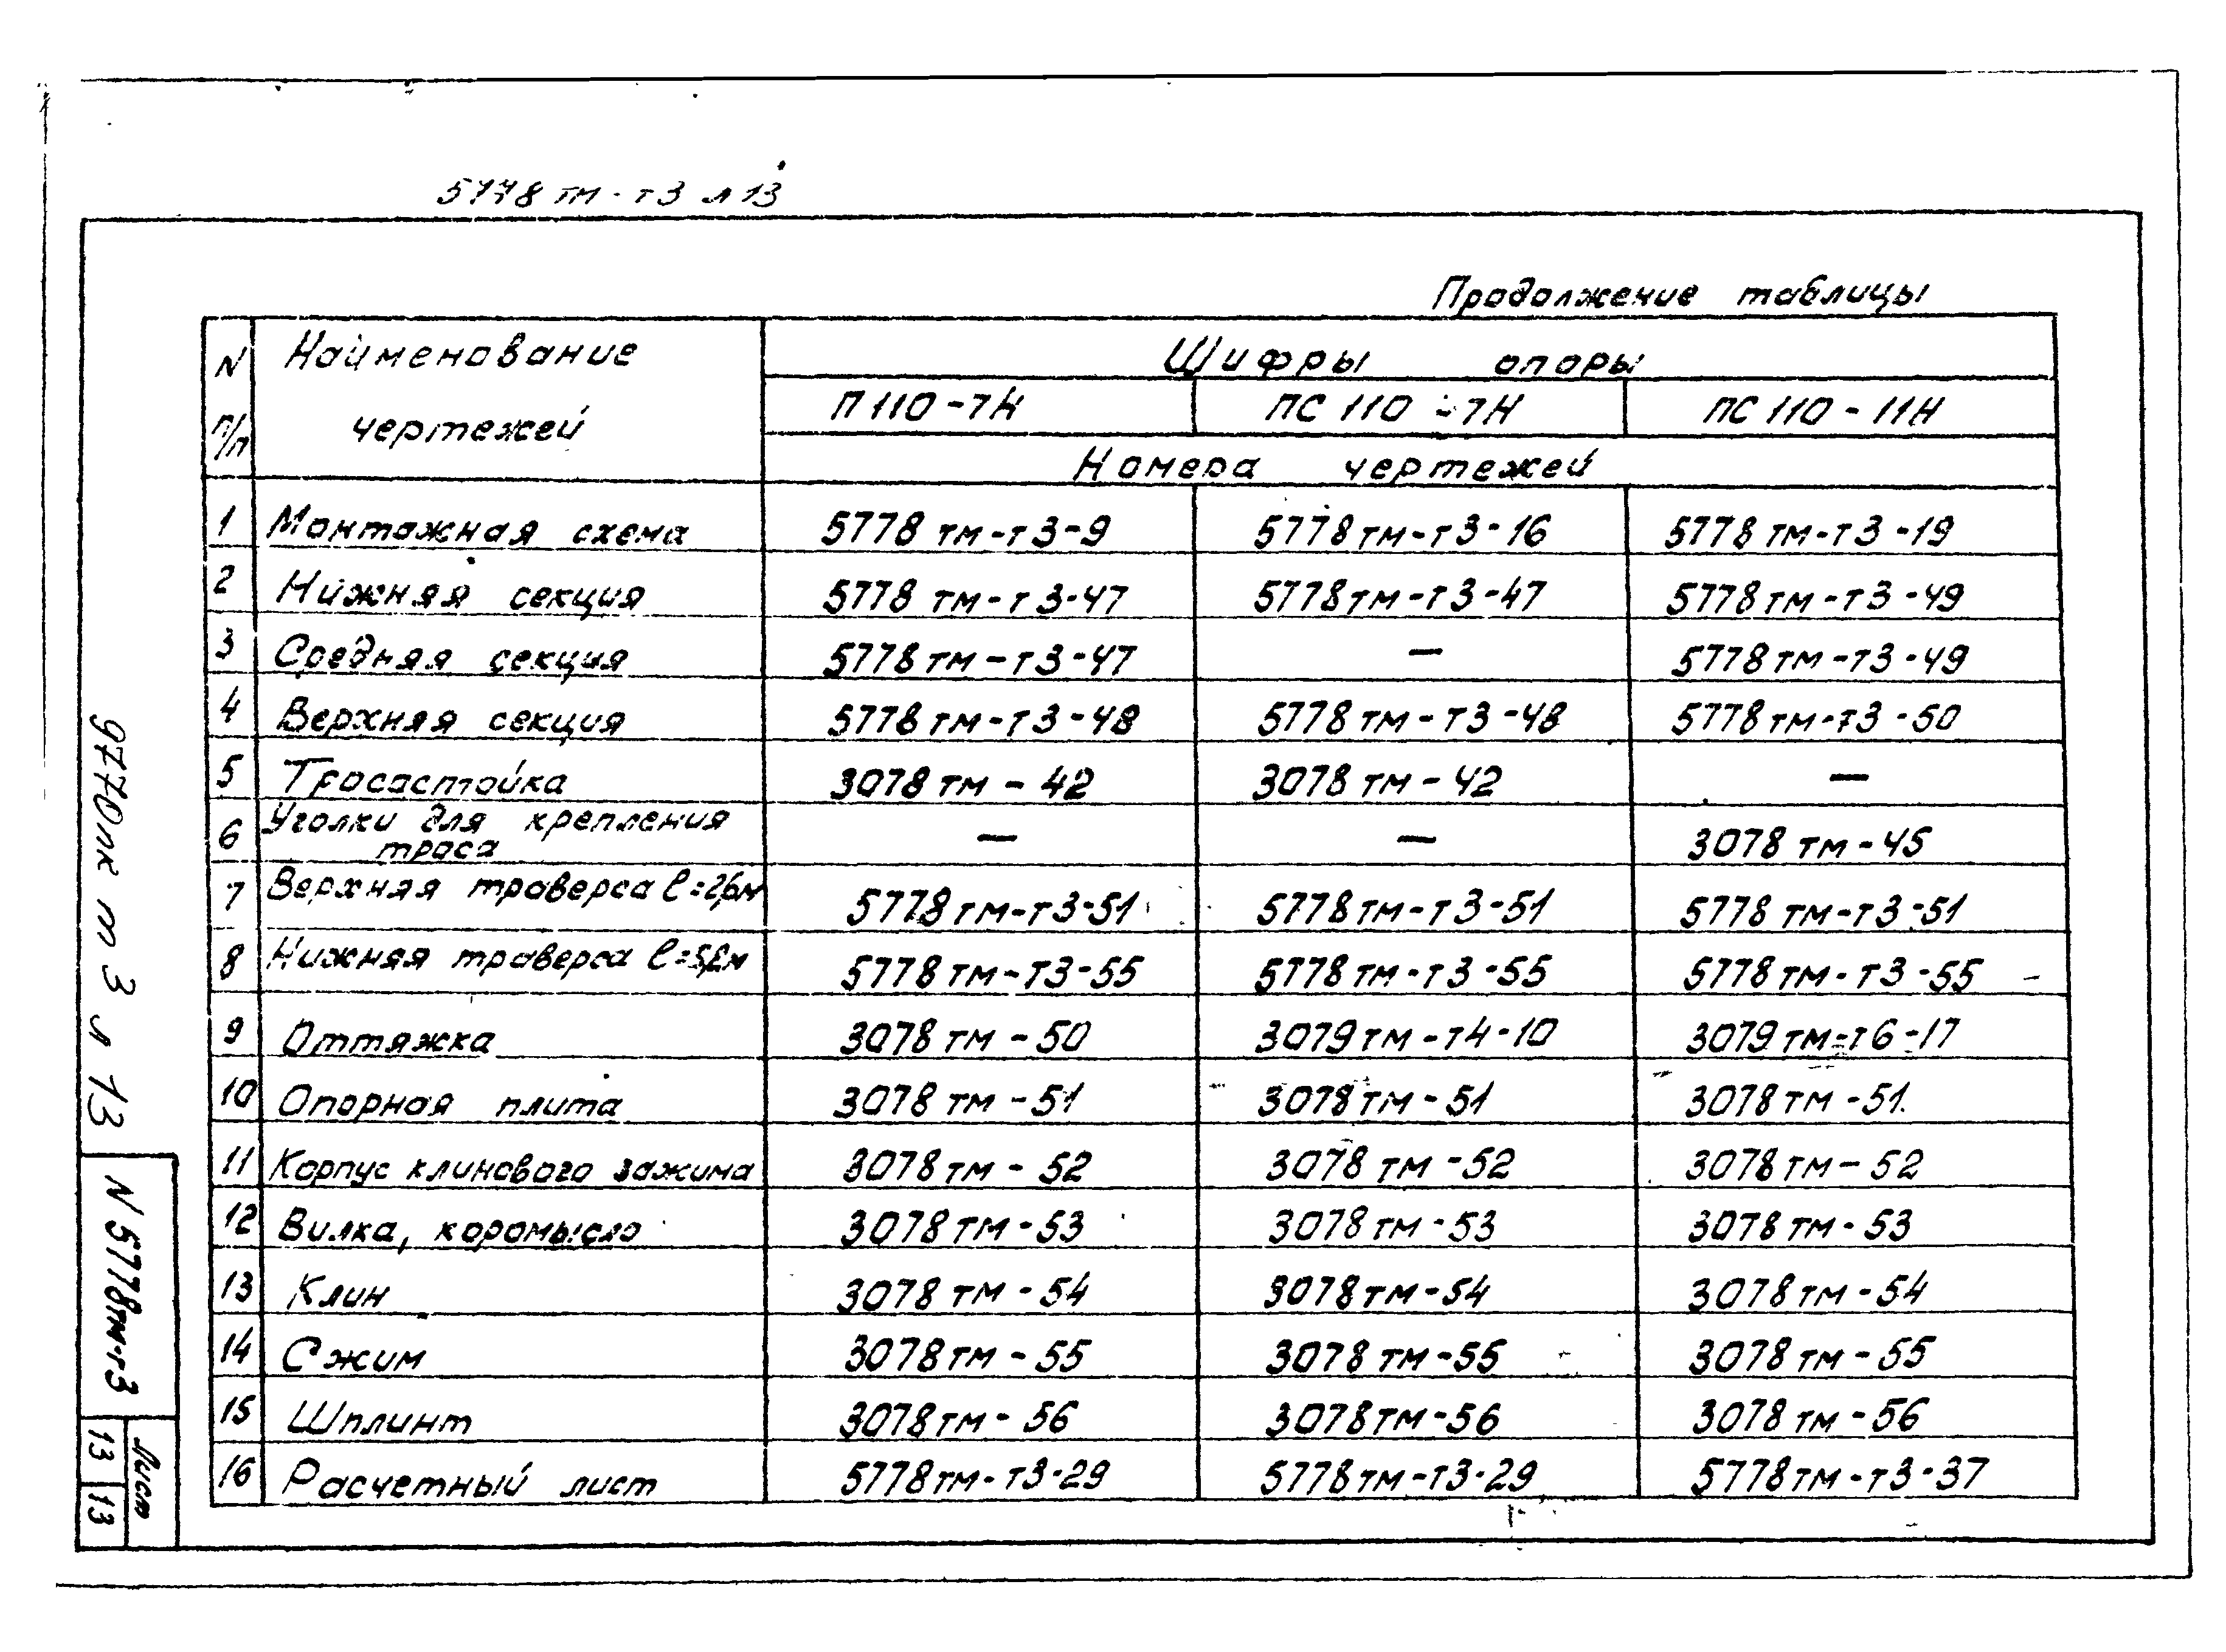 5778 тм-т3 л 13
Продолжение таблицы
N п/п | Наименование чертежей | Шифры опоры
П 110-7Н | ПС 110-7Н | ПС 110-11Н
Номера чертежей
1 | Монтажная схема | 5778 тм-т3-9 | 5778 тм-т3-16 | 5778 тм-т3-19
2 | Нижняя секция | 5778 тм-т3-47 | 5778 тм-т3-47 | 5778 тм-т3-49
3 | Средняя секция | 5778 тм-т3-47 | — | 5778 тм-т3-49
4 | Верхняя секция | 5778 тм-т3-48 | 5778 тм-т3-48 | 5778 тм-т3-50
5 | Тросастойка | 3078 тм-42 | 3078 тм-42 | —
6 | Уголки для крепления троса | — | — | 3078 тм-45
7 | Верхняя траверса ℓ=2,6м | 5778 тм-т3-51 | 5778 тм-т3-51 | 5778 тм-т3-51
8 | Нижняя траверса ℓ=5,2м | 5778 тм-т3-55 | 5778 тм-т3-55 | 5778 тм-т3-55
9 | Оттяжка | 3078 тм-50 | 3079 тм-т4-10 | 3079 тм-т6-17
10 | Опорная плита | 3078 тм-51 | 3078 тм-51 | 3078 тм-51
11 | Корпус клинового зажима | 3078 тм-52 | 3078 тм-52 | 3078 тм-52
12 | Вилка, коромысло | 3078 тм-53 | 3078 тм-53 | 3078 тм-53
13 | Клин | 3078 тм-54 | 3078 тм-54 | 3078 тм-54
14 | Сжим | 3078 тм-55 | 3078 тм-55 | 3078 тм-55
15 | Шплинт | 3078 тм-56 | 3078 тм-56 | 3078 тм-56
16 | Расчетный лист | 5778 тм-т3-29 | 5778 тм-т3-29 | 5778 тм-т3-37
9770лк т 3 л 13
N 5778тм-т3
Лист
13 | 13